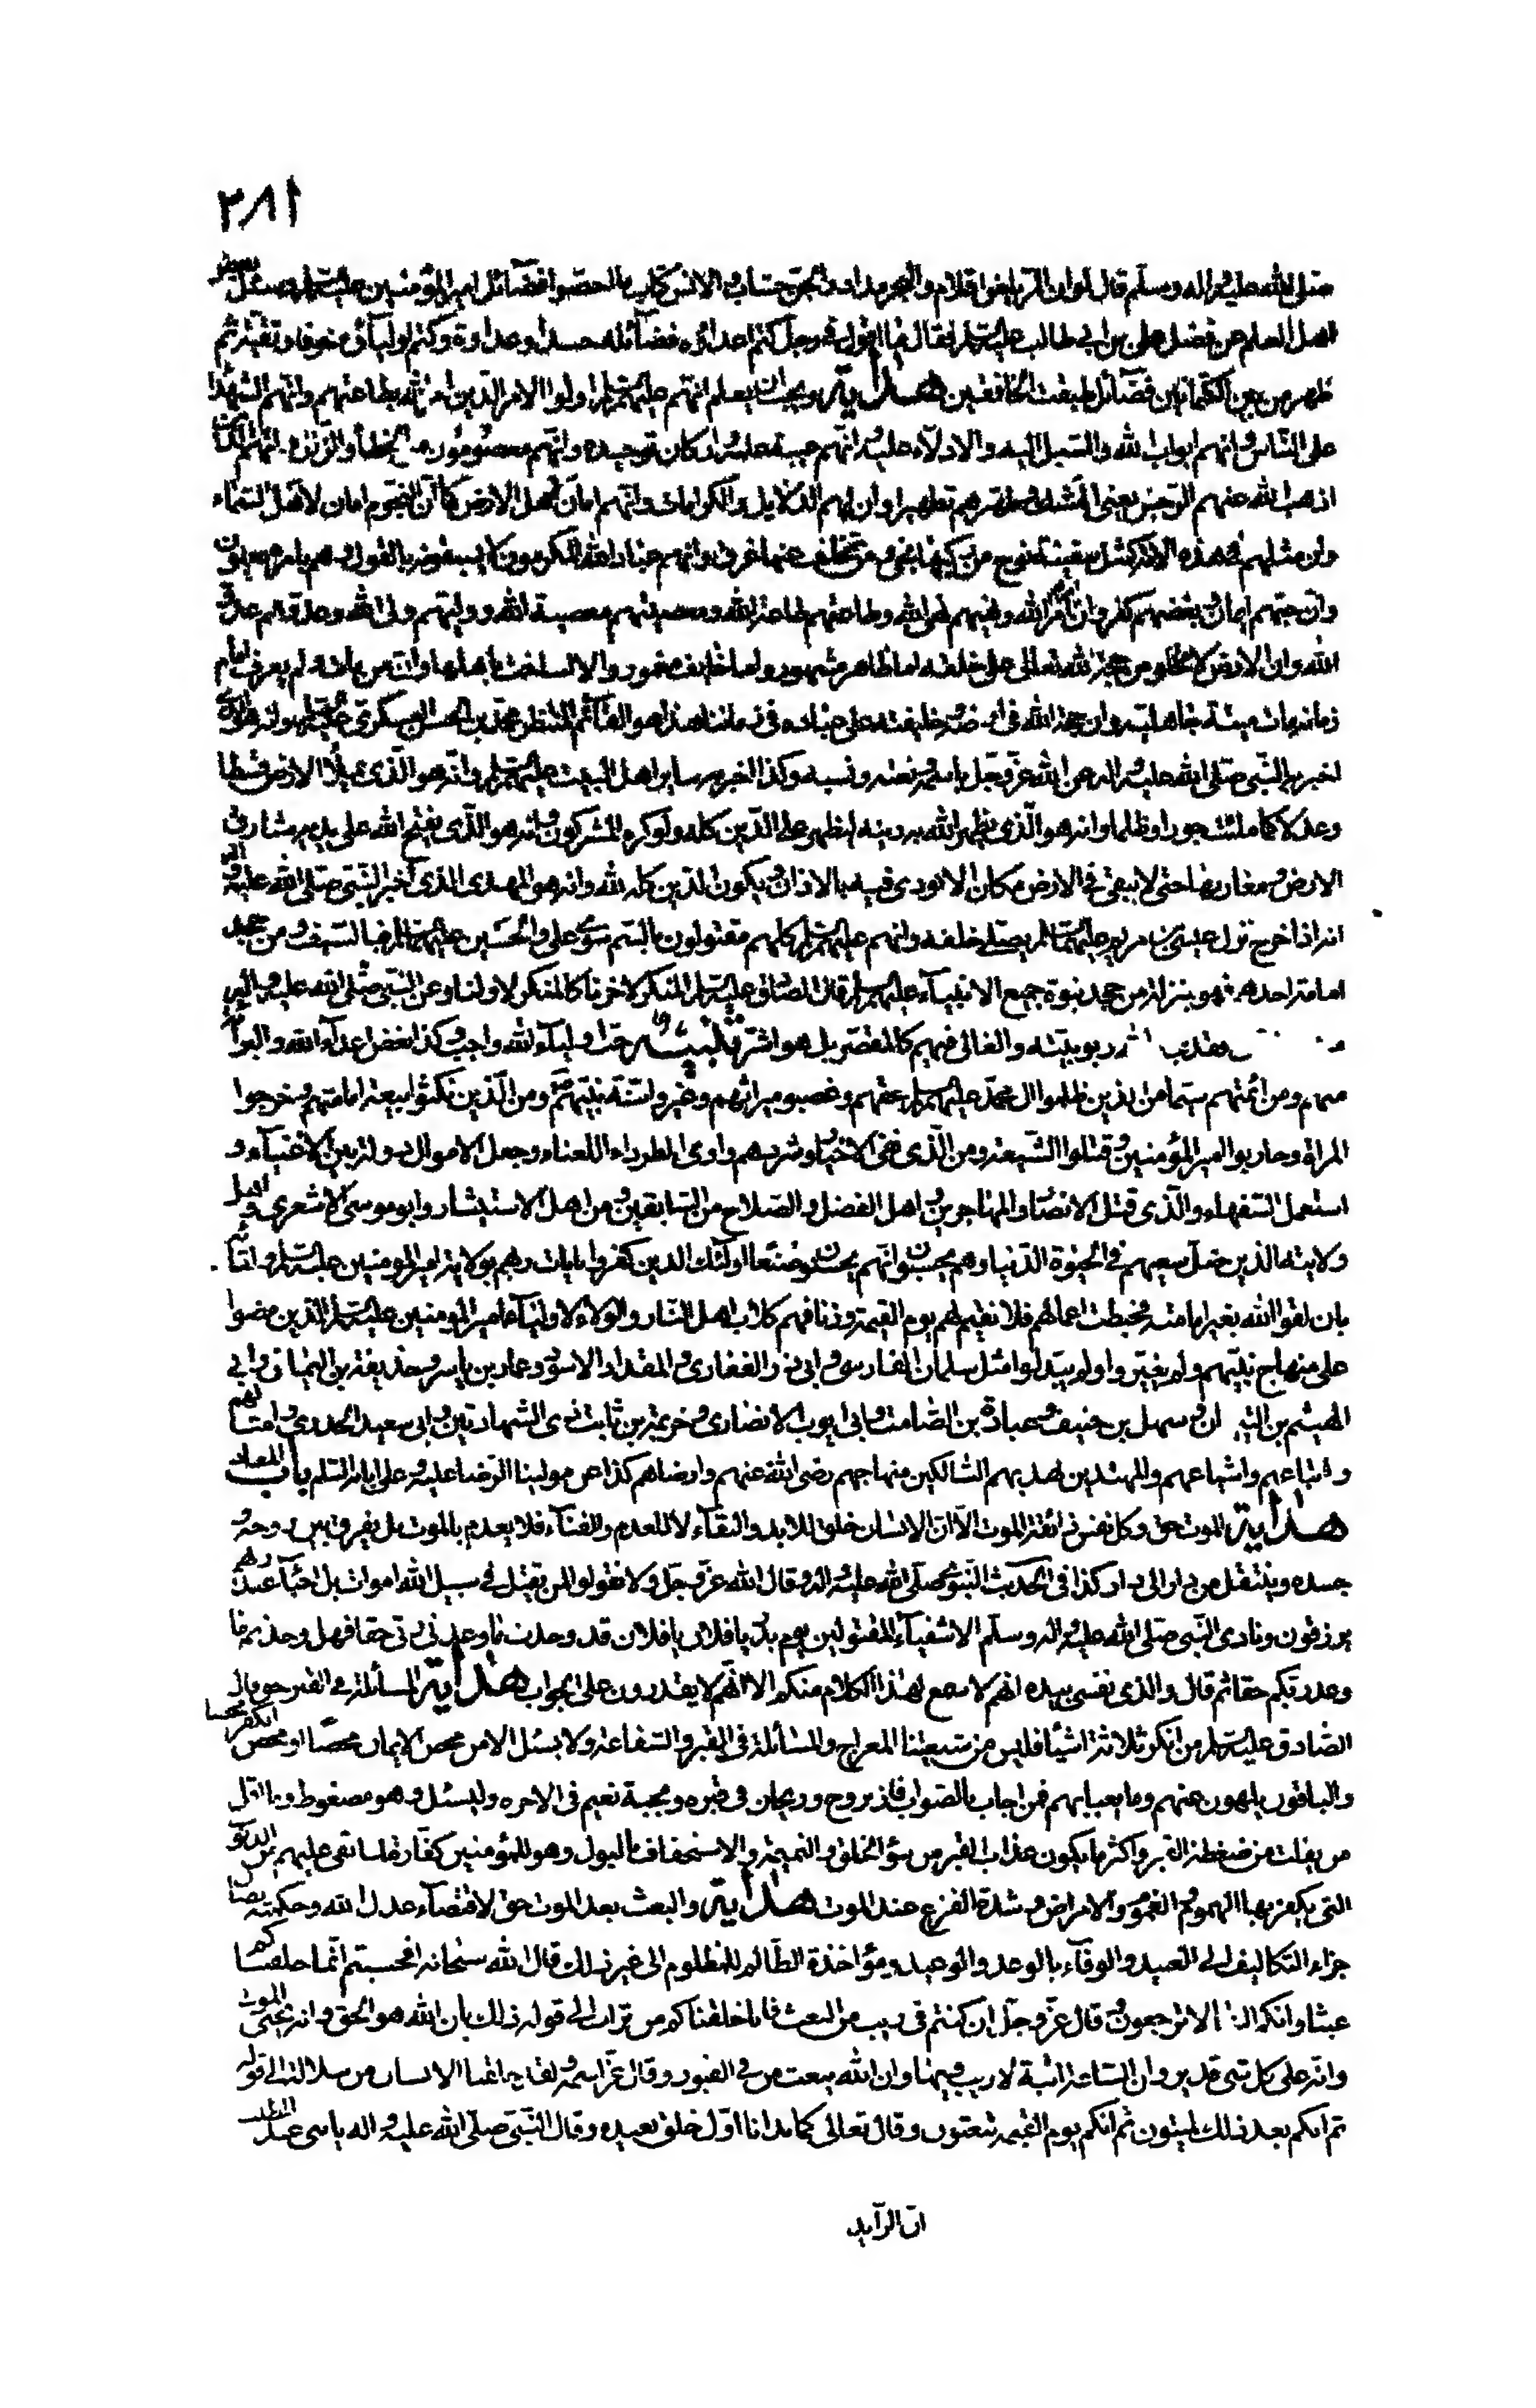 ٣٨١
صلى الله عليه واله وسلم قال لو ان الرياض اقلام والبحر مداد والجن حساب والانس كتاب ما احصوا فضائل امير المؤمنين عليه السلم وسئل بعض
اهل العلم عن فضل علي بن ابي طالب عليه السلم فقال ما اقول في رجل كتم اعداؤه فضائله حسدا وعداوة وكتم اولياؤه خوفا وتقية ثم
ظهر من بين الكتمانين فضائل طبقت الخافقين هداية ويجب ان يعلم انهم عليهم السلم اولوا الامر الذين امر الله بطاعتهم وانهم الشهداء
على الناس وانهم ابواب الله والسبيل اليه والادلاء عليه وانهم عيبة علمه واركان توحيده وانهم معصومون من الخطأ والزلل وانهم الذين
اذهب الله عنهم الرجس يعني الشك وطهرهم تطهيرا وان لهم الدلايل والكرامات وانهم امان لاهل الارض كما ان النجوم امان لاهل السماء
وان مثلهم في هذه الامة كمثل سفينة نوح من ركبها نجى ومن تخلف عنها غرق وانهم عباد الله المكرمون لا يسبقونه بالقول وهم بامره يعملون
وان حبهم ايمان وبغضهم كفر وان امرهم امر الله ونهيهم نهي الله وطاعتهم طاعة الله ومعصيتهم معصية الله ووليهم ولي الله وعدوهم عدو
الله وان الارض لا تخلو من حجة الله تعالى على خلقه اما ظاهر مشهور واما خائف مغمور والا لساخت باهلها وان من مات ولم يعرف امام
زمانه مات ميتة جاهلية وان حجة الله في ارضه وخليفته على عباده في زماننا هذا هو القائم المنتظر محمد بن الحسن العسكري عليه السلم وانه هو الذي
اخبر به النبي صلى الله عليه واله عن الله عز وجل باسمه ونعته ونسبه وكذا اخبر به ساير اهل البيت عليهم السلم وانه هو الذي يملأ الارض قسطا
وعدلا كما ملئت جورا وظلما وانه هو الذي يظهر الله به دينه ليظهره على الدين كله ولو كره المشركون وانه هو الذي يفتح الله على يديه مشارق
الارض ومغاربها حتى لا يبقى في الارض مكان الا نودي فيه بالاذان ويكون الدين كله لله وانه هو المهدي الذي اخبر النبي صلى الله عليه واله
انه اذا خرج نزل عيسى بن مريم عليهما السلم يصلي خلفه وانهم عليهم السلم كلهم مقتولون بالسم سوى علي والحسين عليهما السلم فبالسيف ومن جحد
امامة احدهم فهو بمنزلة من جحد نبوة جميع الانبياء عليهم السلم قال الصادق عليه السلم المنكر لاخرنا كالمنكر لاولنا وعن النبي صلى الله عليه واله
ربوبيته والغالي فيهم كالمقصر بل هو اشر تنبيه حب اولياء الله واجب وكذا بغض اعداء الله والبراءة
منهم ومن ائمتهم سيما من الذين ظلموا ال محمد عليهم السلم حقهم وغصبوا ميراثهم وغيروا سنة نبيهم ومن الذين نكثوا بيعة امامهم واخرجوا
المراة وحاربوا امير المؤمنين وقتلوا الشيعة ومن الذي نفى الاخيار وشردهم واوى الطرداء اللعناء وجعل الاموال دولة بين الاغنياء و
استعمل السفهاء والذي قتل الانصار والمهاجرين واهل الفضل والصلاح من السابقين ومن اهل الاستيثار وابو موسى الاشعري واهل
ولايته الذين ضل سعيهم في الحيوة الدنيا وهم يحسبون انهم يحسنون صنعا اولئك الذين كفروا بايات ربهم بولاية امير المؤمنين عليه السلم ولقائه
بان لقوا الله بغير امامته فحبطت اعمالهم فلا نقيم لهم يوم القيمة وزنا فهم كلاب اهل النار والولاء لاولياء امير المؤمنين عليه السلم الذين مضوا
على منهاج نبيهم ولم يغيروا ولم يبدلوا مثل سلمان الفارسي وابي ذر الغفاري والمقداد الاسود وعمار بن ياسر وحذيفة بن اليماني وابي
الهيثم بن التيهان وسهل بن حنيف وعبادة بن الصامت وابي ايوب الانصاري وخزيمة بن ثابت ذي الشهادتين وابي سعيد الخدري وامثالهم
واتباعهم واشياعهم والمهتدين بهديهم السالكين منهاجهم رضي الله عنهم وارضاهم كذا عن مولينا الرضا عليه وعلى ابائه السلم باب المعاد
هداية الموت حق وكل نفس ذائقة الموت الا ان الانسان خلق للابد والبقاء لا للعدم والفناء فلا يعدم بالموت بل يفرق بين روحه و
جسده وينتقل من دار الى دار كذا في الحديث النبوي صلى الله عليه واله وقال الله عز وجل ولا تقولوا لمن يقتل في سبيل الله اموات بل احياء عند ربهم
يرزقون ونادى النبي صلى الله عليه واله وسلم الاشقياء المقتولين يوم بدر يا فلان يا فلان قد وجدت ما وعدني ربي حقا فهل وجدتم ما
وعد ربكم حقا ثم قال والذي نفسي بيده انهم لاسمع لهذا الكلام منكم الا انهم لا يقدرون على الجواب هداية المسألة في القبر حق قال
الصادق عليه السلم من انكر ثلاثة اشياء فليس من شيعتنا المعراج والمسألة في القبر والشفاعة ولا يسئل الا من محض الايمان محضا او محض الكفر محضا
والباقون يلهون عنهم وما يعبأ بهم فمن اجاب بالصواب فاز بروح وريحان في قبره وبجنة نعيم في الاخره وليسئل وهو مضغوط وما اقل
من يفلت من ضغطة القبر واكثر ما يكون عذاب القبر من سوء الخلق والنميمة والاستخفاف بالبول وهو للمؤمنين كفارة لما بقى عليهم من الذنوب
التي يكفر بها الهموم والغموم والامراض وشدة الفزع عند الموت هداية والبعث بعد الموت حق لاقتضاء عدل الله وحكمته ايصال
جزاء التكاليف الى العبيد والوفاء بالوعد والوعيد ومؤاخذة الظالم للمظلوم الى غير ذلك قال الله سبحانه افحسبتم انما خلقناكم
عبثا وانكم الينا لا ترجعون وقال عز وجل ان كنتم في ريب من البعث فانا خلقناكم من تراب الى قوله ذلك بان الله هو الحق وانه يحيى الموتى
وانه على كل شئ قدير وان الساعة اتية لا ريب فيها وان الله يبعث من في القبور وقال عز اسمه ولقد خلقنا الانسان من سلالة الى قوله
ثم انكم بعد ذلك لميتون ثم انكم يوم القيمة تبعثون وقال تعالى كما بدأنا اول خلق نعيده وقال النبي صلى الله عليه واله يا بني عبد المطلب
ان الرآيد